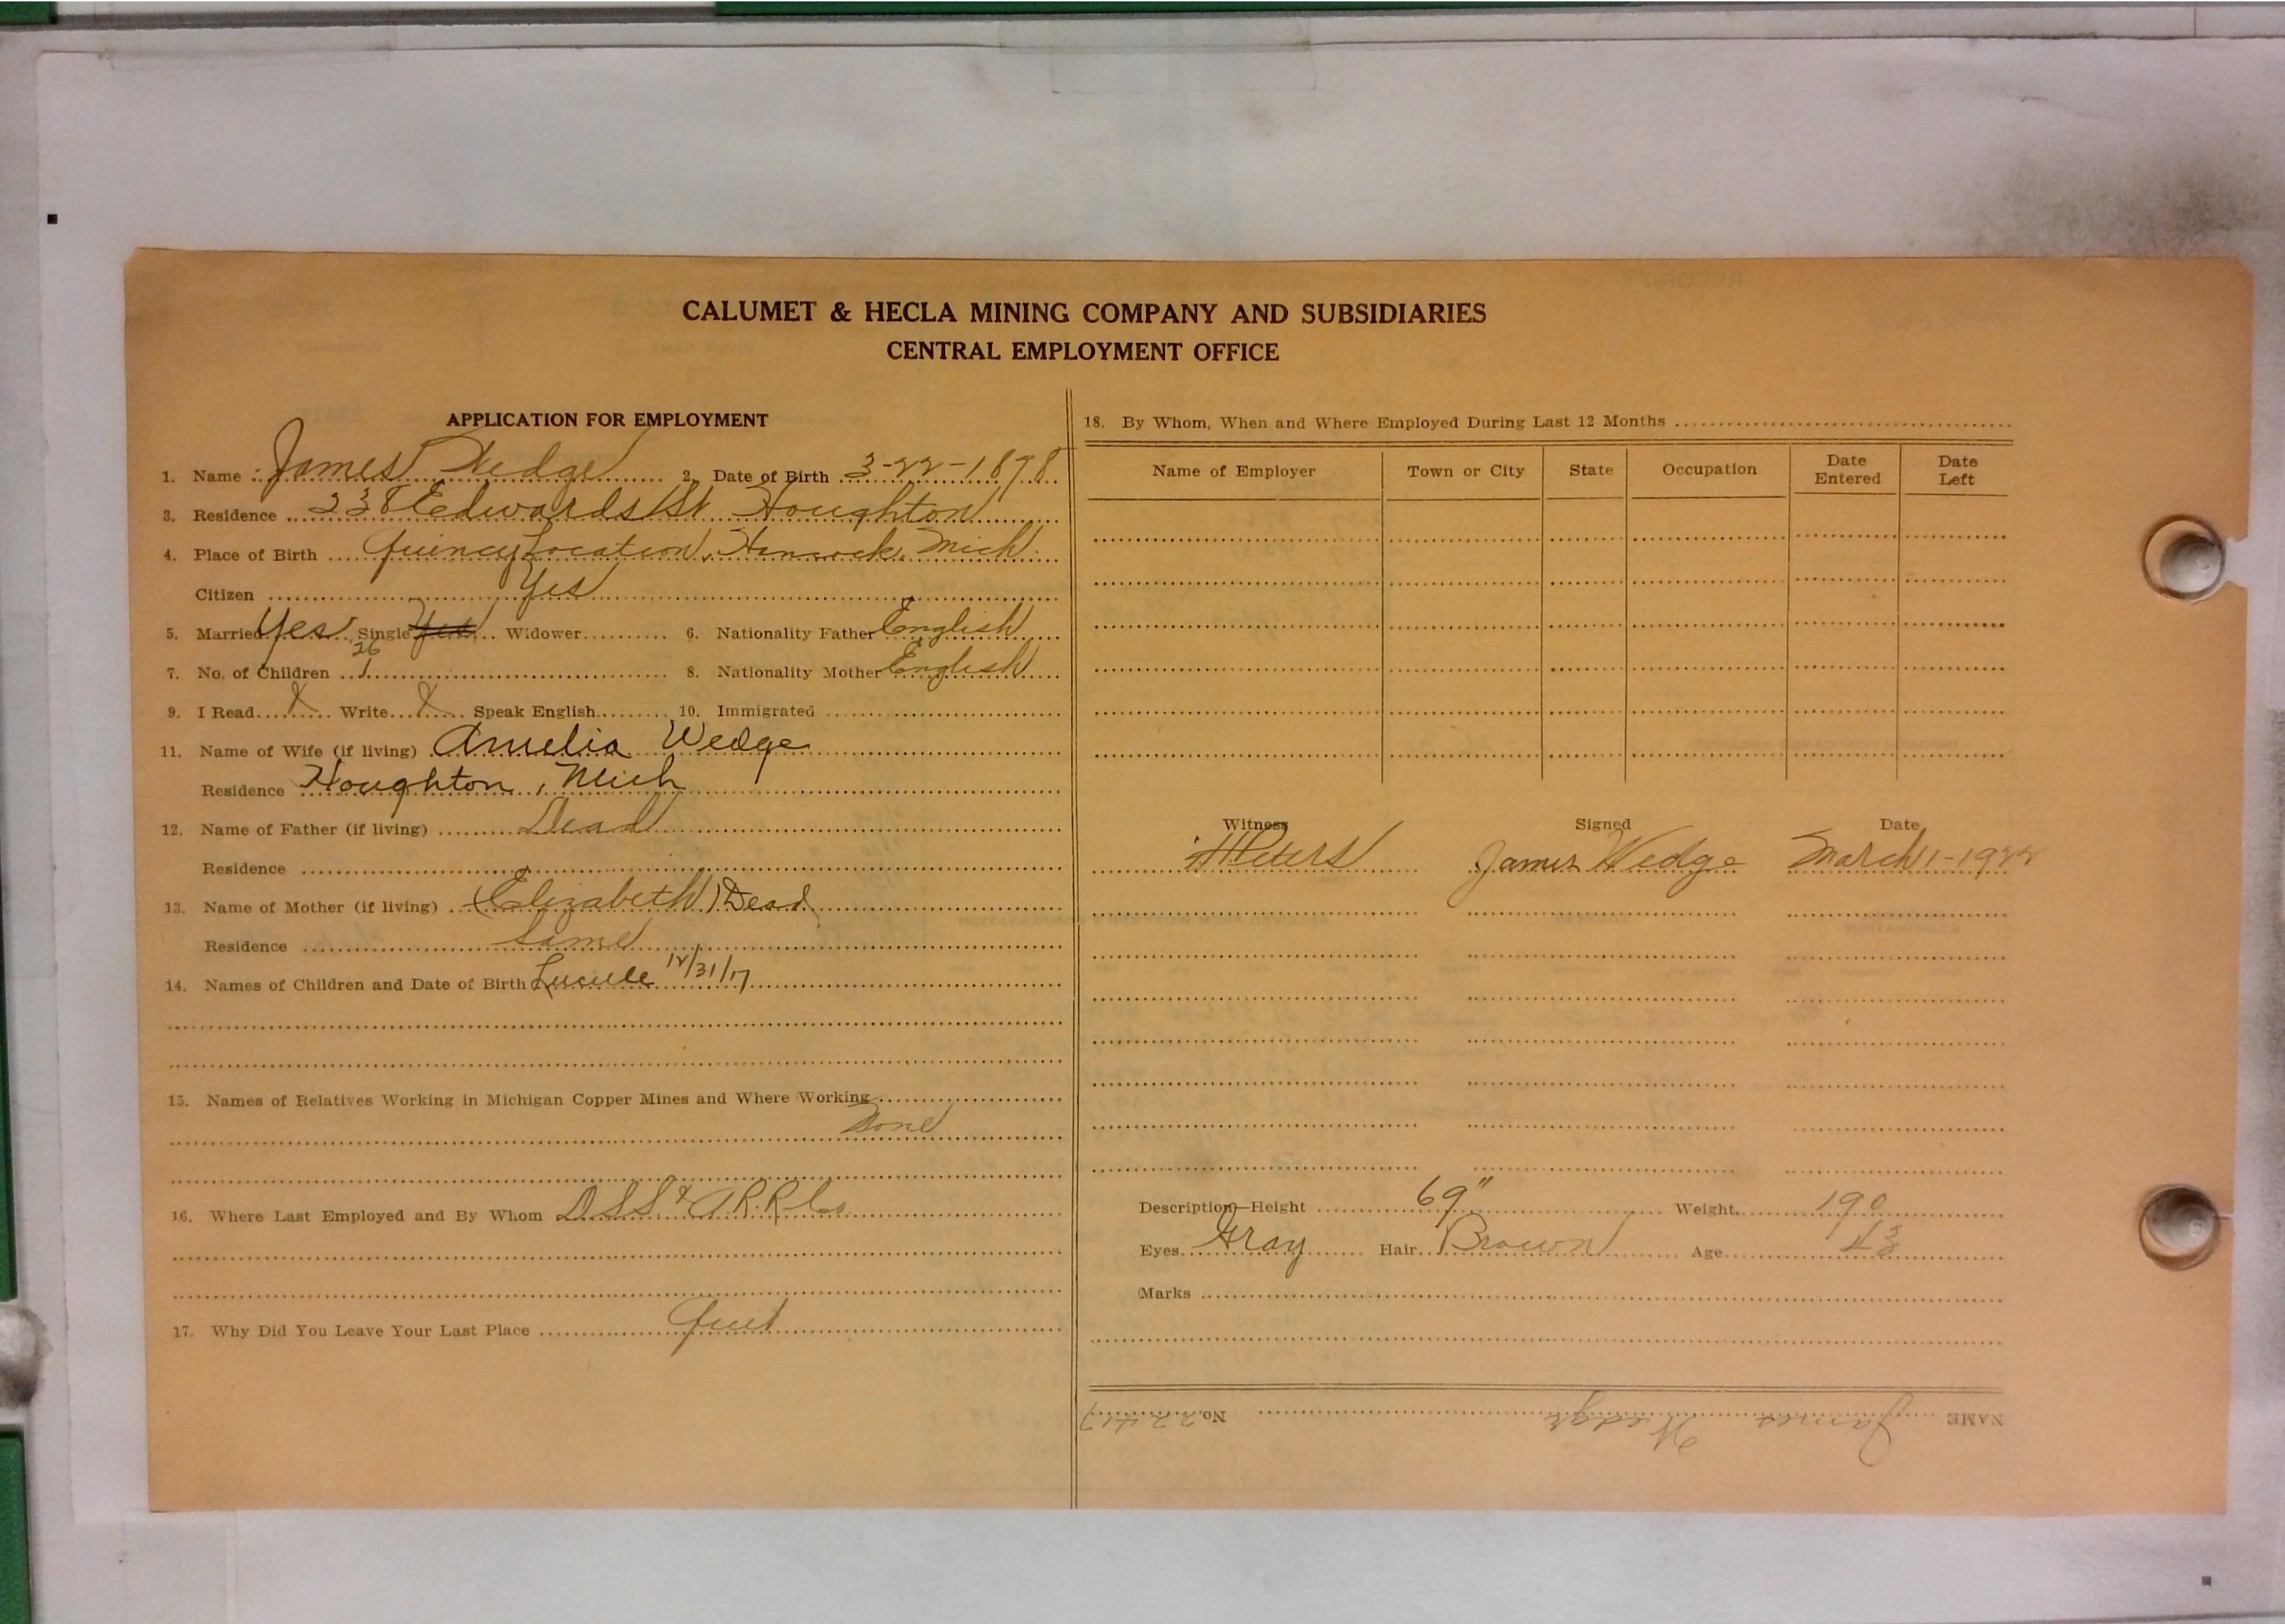 CALUMET & HECLA MINING COMPANY AND SUBSIDIARIES
CENTRAL EMPLOYMENT OFFICE
APPLICATION FOR EMPLOYMENT
1. Name James Wedge 2. Date of Birth 3-22-1878
3. Residence 238 Edwards St Houghton
4. Place of Birth Quincy Location, Hancock, Mich
Citizen Yes
5. Married Yes Single Yes Widower 6. Nationality Father English
26
7. No. of Children 1 8. Nationality Mother English
9. I Read X Write X Speak English 10. Immigrated
11. Name of Wife (if living) Amelia Wedge
Residence Houghton, Mich
12. Name of Father (if living) Dead
Residence
13. Name of Mother (if living) (Elizabeth) Dead
Residence Same
14. Names of Children and Date of Birth Lucille 12/31/17
15. Names of Relatives Working in Michigan Copper Mines and Where Working
None
16. Where Last Employed and By Whom D S S & A R. R Co
17. Why Did You Leave Your Last Place Quit
18. By Whom, When and Where Employed During Last 12 Months
Name of Employer Town or City State Occupation Date Entered Date Left
Witness Signed Date
James Wedge March 1-1922
Description—Height 69" Weight 190
Eyes Gray Hair Brown Age 43
Marks
NAME James Wedge No. 22417